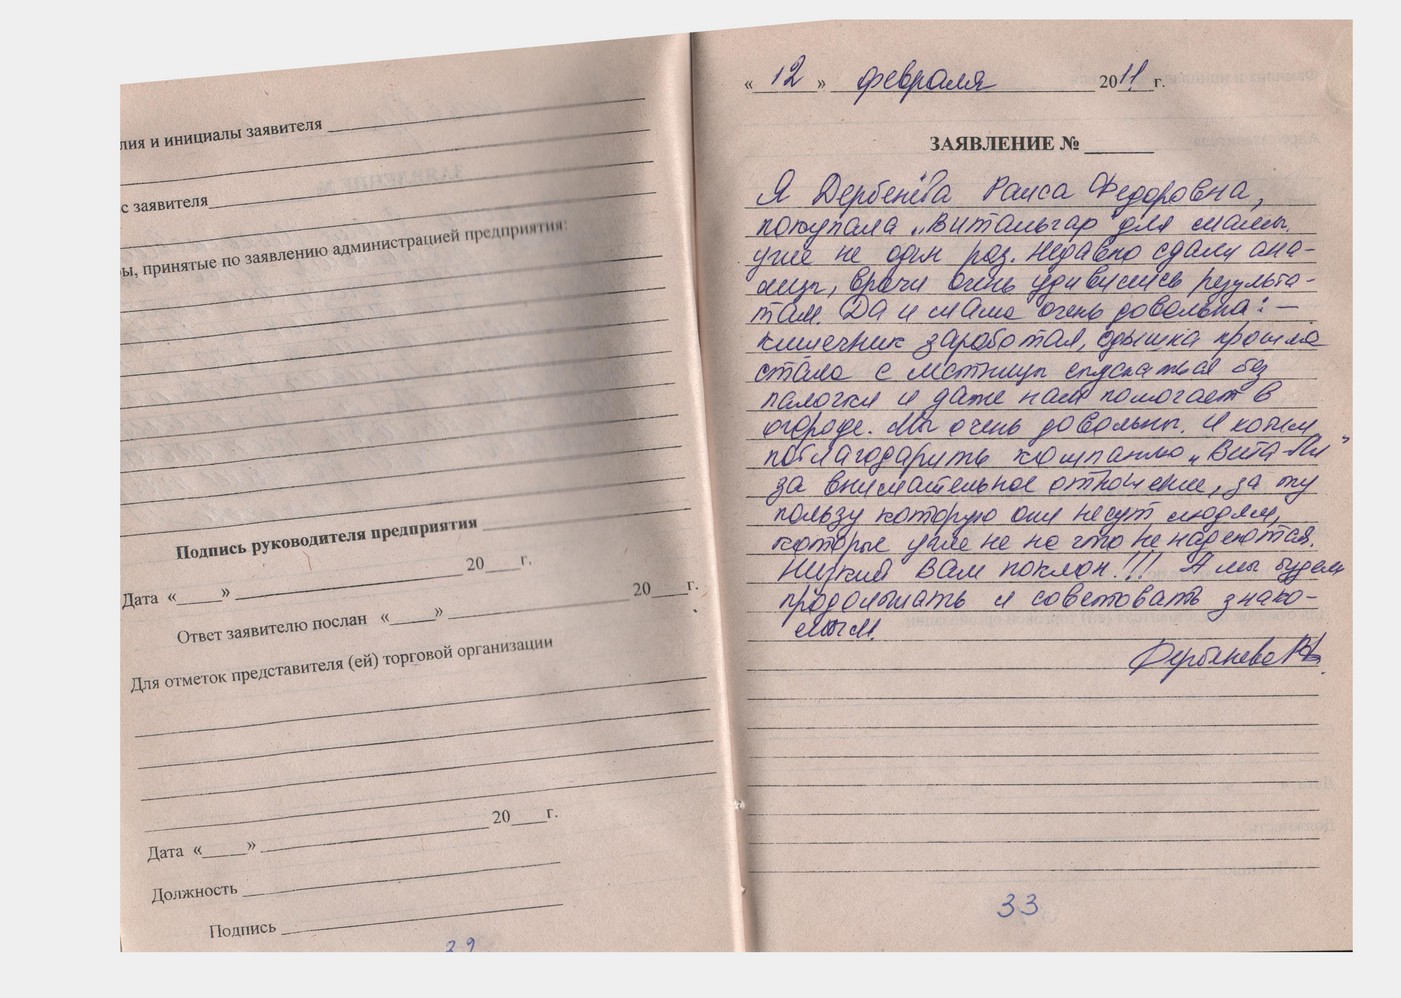 лия и инициалы заявителя
с заявителя
ы, принятые по заявлению администрацией предприятия:
Подпись руководителя предприятия
Дата «_____» _____ 20____г.
Ответ заявителю послан «_____» _____ 20____г.
Для отметок представителя (ей) торговой организации
Дата «_____» _____ 20____г.
Должность
Подпись
« 12 » февраля 2011г.
ЗАЯВЛЕНИЕ № ______
Я Дербенёва Раиса Федоровна,
покупала „Витальгар для мамы
уже не один раз. Недавно сдали ана-
лизы, врачи очень удивились результа-
там. Да и мама очень довольна: –
кишечник заработал, одышка прошла
стала с лестницы спускаться без
палочки и даже нам помогает в
огороде. Мы очень довольны. И хотим
поблагодарить компанию „Вита-Ли"
за внимательное отношение, за ту
пользу которую они несут людям,
которые уже не на что не надеются.
Низкий Вам поклон!!! А мы будем
продолжать и советовать знако-
мым.
Дербенева
33